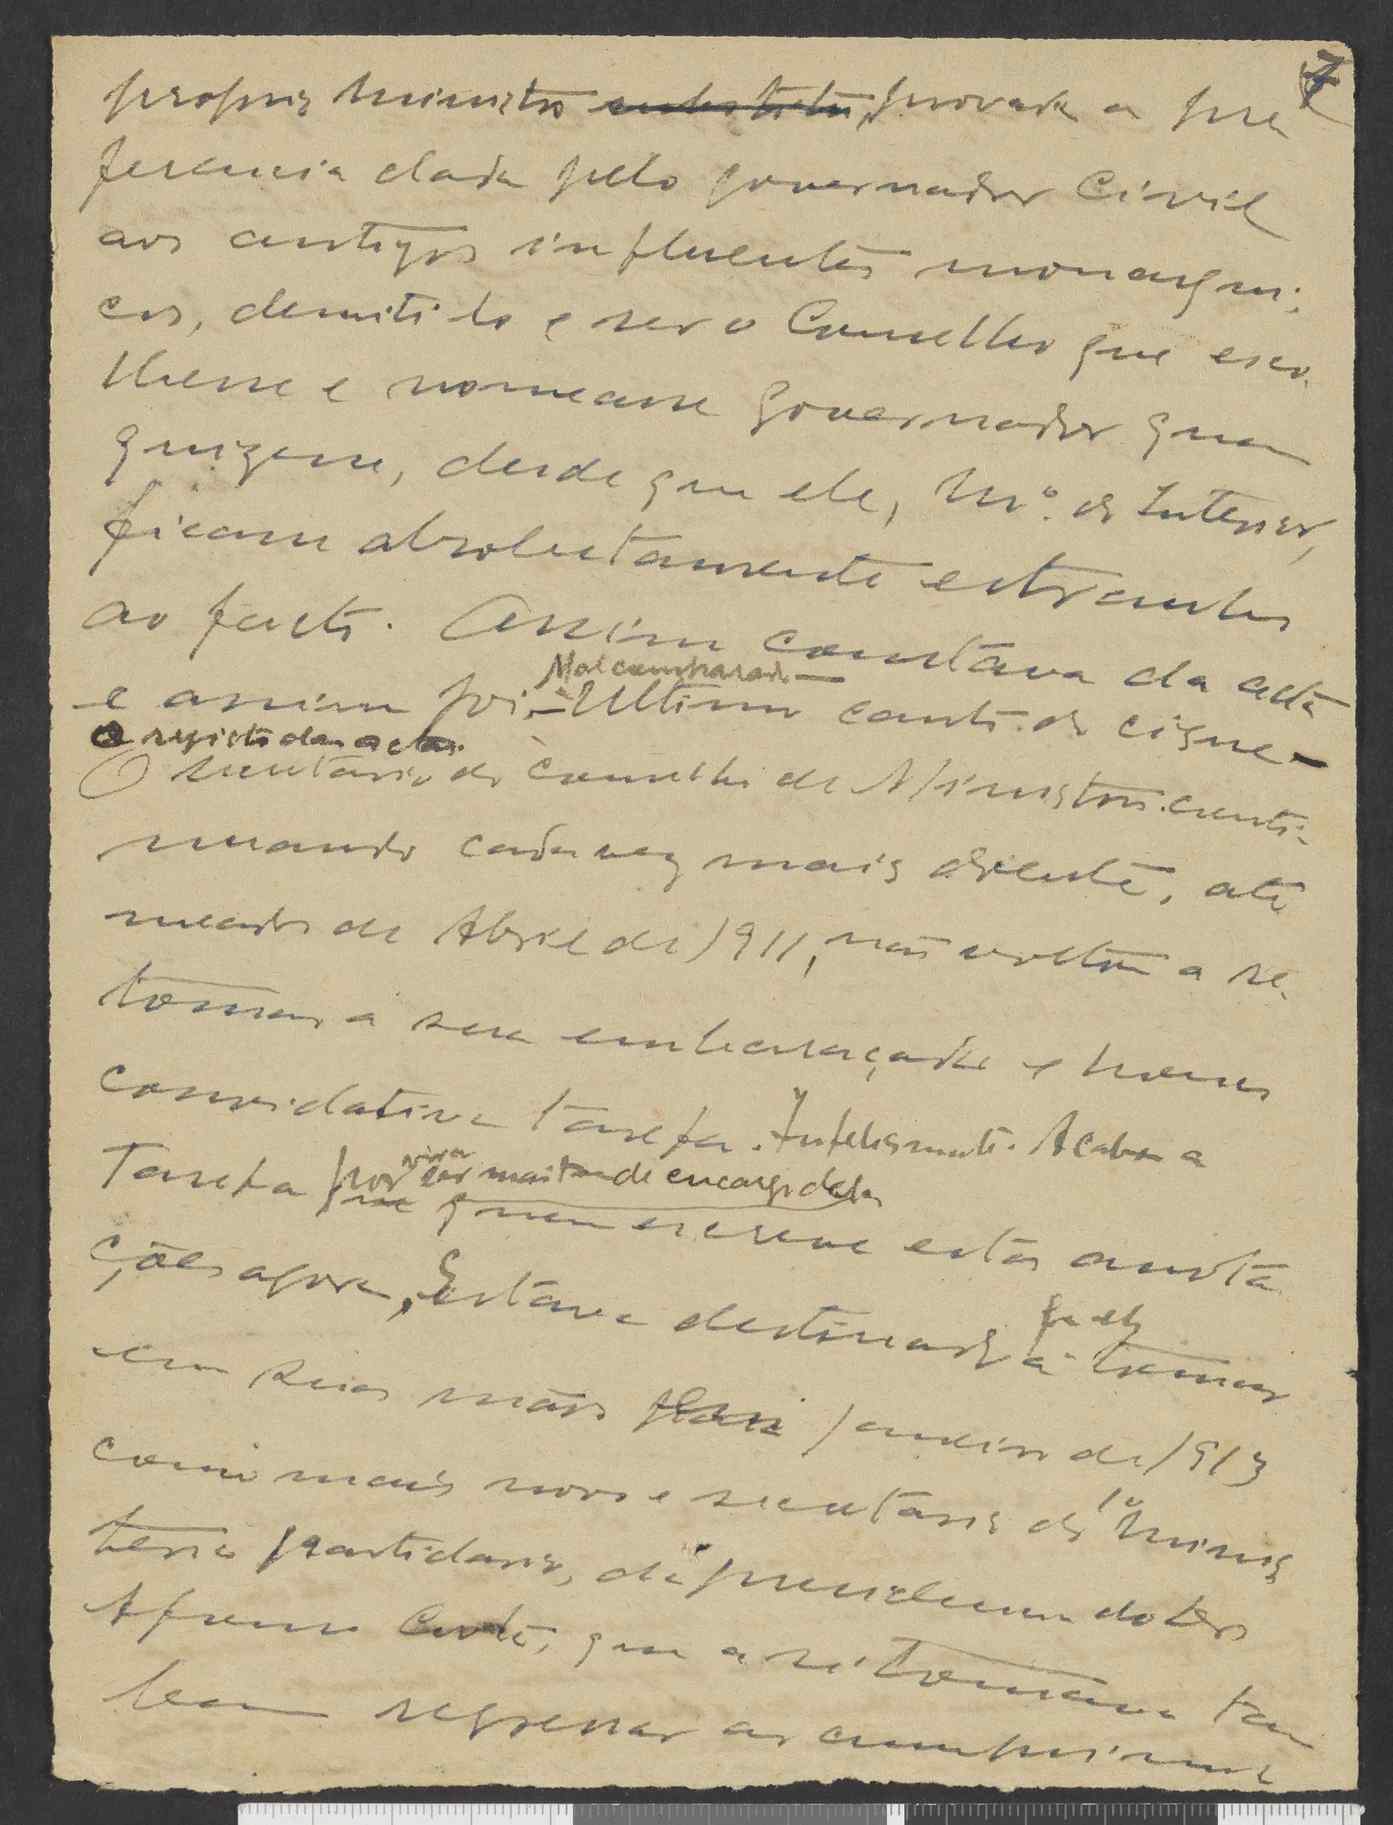 7
proprio Ministro substituto, provada a pre
ferencia dada pelo governador Civil
aos antigos influentes monarqui-
cos, demiti-lo e ser o Conselho que esco-
lhesse e nomeasse governador quem
quizesse, desde que ele, Mº. do Interior,
ficasse absolutamente estranho
ao facto. Assim constava da acta
Mal comparado —
e assim foi, — Ultimo canto do cisne —
o registo das actas.
O secretario do Conselho de Ministros conti-
nuando cada vez mais doente, até
meados de Abril de 1911, não voltou a re-
tomar a sua embaraçada e pouco
convidativa tarefa. Infelizmente. Acabou a
tarefa por
quem escreve estas anota
ções agora. Estava destinado a tomar
em suas mãos Janeiro de 1913
como mais novo e secretario do 1º Minis
terio partidario, da presidencia do Dr.
Afonso Costa, que a si tomava tam
bem regressar ao cumprimen